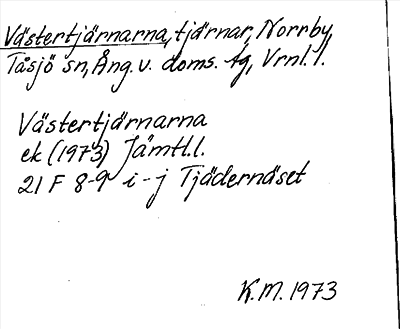 Västertjärnarna, tjärnar, Norrby,
Tåsjö sn, Ång. v. doms. tg, Vrnl. l.
Västertjärnarna
ek (1973) Jämtl.l.
21 F 8-9 i-j Tjädernäset
K.M. 1973